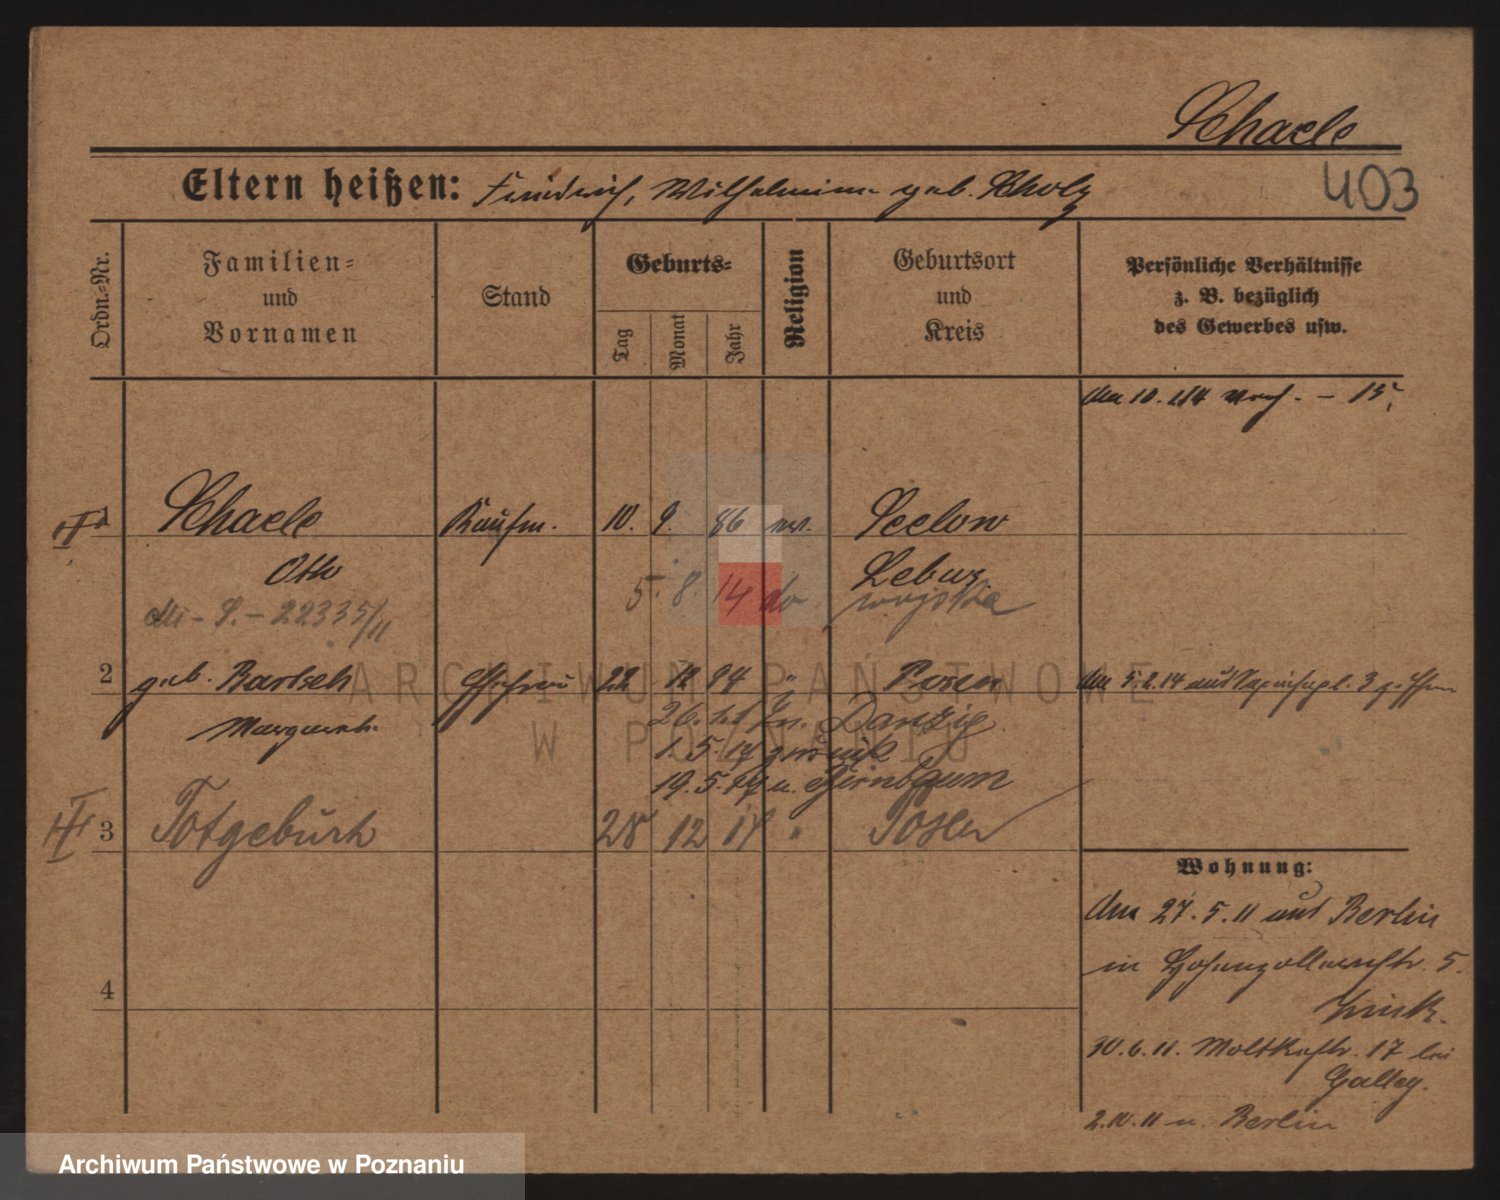 Schaele
403
Eltern heißen: Friedrich, Wilhelmine geb. Scholz
Ordn.-Nr.
Familien-
und
Vornamen
Stand
Geburts-
Tag
Monat
Jahr
Religion
Geburtsort
und
Kreis
Persönliche Verhältnisse
z. B. bezüglich
des Gewerbes usw.
1 Schaele Kaufm. 10. 9. 86 ev. Seelow
Otto Lebus
5. 8. 14 do
22335/11
2 geb. Bartsch Ehefrau 22 12 94 " Posen
Margareth.
Danzig
1. 5. 19 zurück
19. 5. 19 n. Birnbaum
3 Totgeburt 28 12 17 " Posen
4
Wohnung:
Am 27. 5. 11 aus Berlin
in Hohenzollernstr. 5.
30. 6. 11. Moltkestr. 17 bei
Galley.
2. 10. 11 n. Berlin
ARCHIWUM PAŃSTWOWE
W POZNANIU
Archiwum Państwowe w Poznaniu